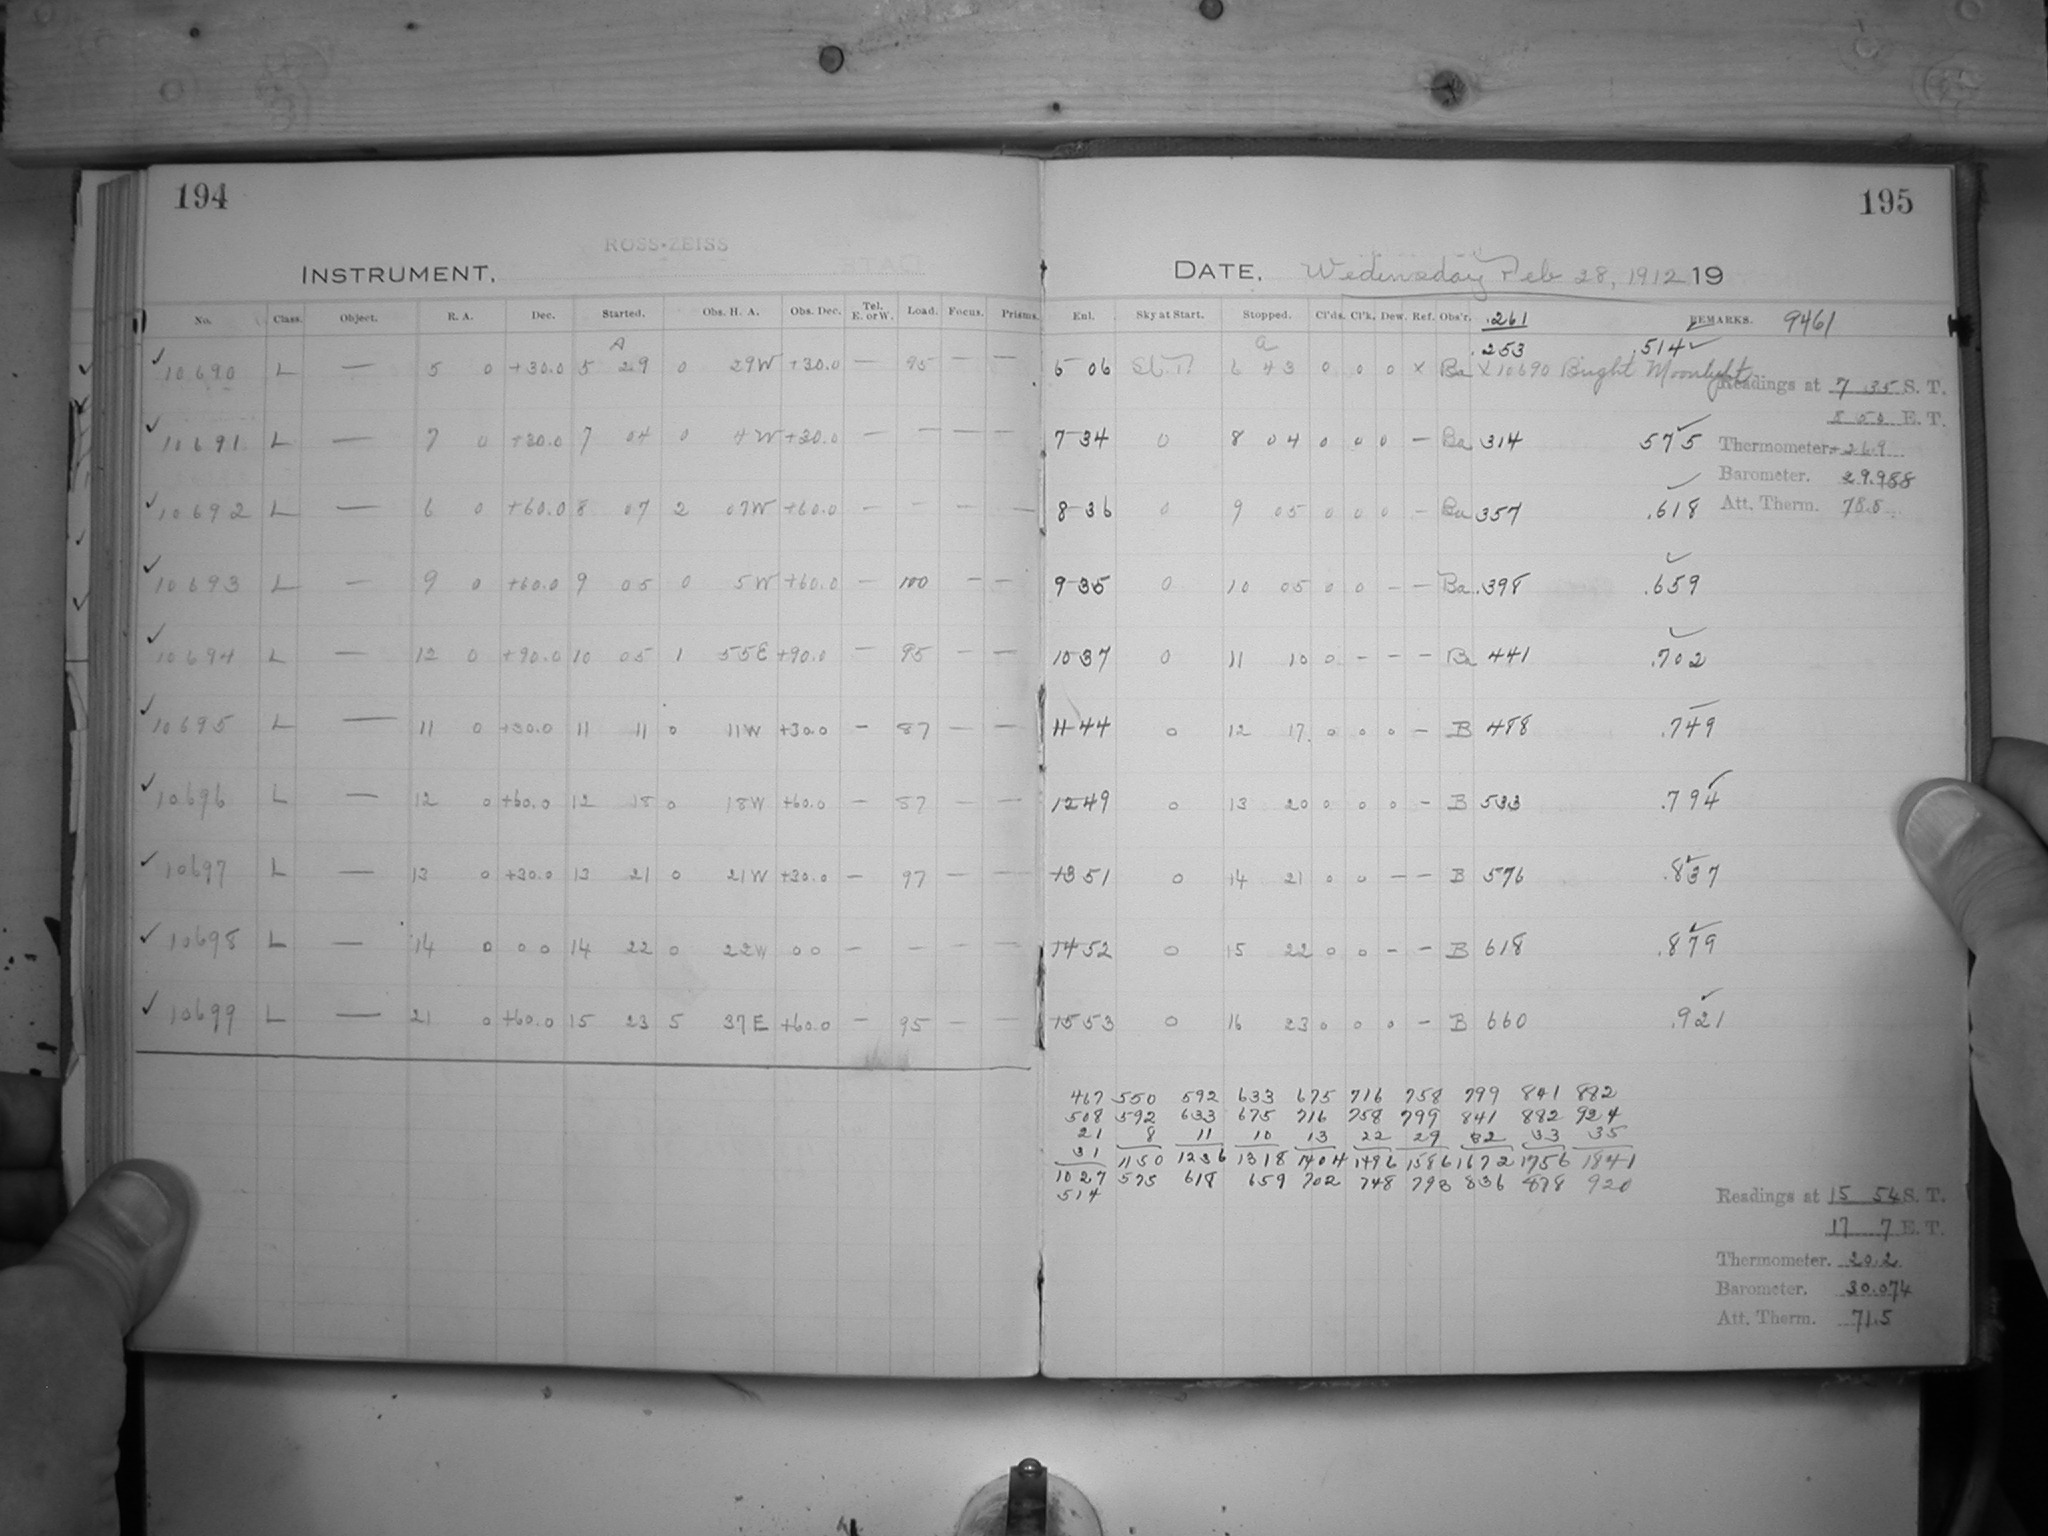 194
ROSS-ZEISS
INSTRUMENT.
No. Class. Object. R. A. Dec. Started. Obs. H. A. Obs. Dec. Tel. E. or W. Load. Focus. Prisms.
A
10690 L — 5 0 +30.0 5 29 0 29W +30.0 — 95 — —
10691 L — 7 0 +30.0 7 04 0 4W +30.0 — — — —
10692 L — 6 0 +60.0 8 07 2 07W +60.0 — — — —
10693 L — 9 0 +60.0 9 05 0 5W +60.0 — 100 — —
10694 L — 12 0 +90.0 10 05 1 55E +90.0 — 95 — —
10695 L — 11 0 +30.0 11 11 0 11W +30.0 — 87 — —
10696 L — 12 0 +60.0 12 18 0 18W +60.0 — 87 — —
10697 L — 13 0 +30.0 13 21 0 21W +30.0 — 97 — —
10698 L — 14 0 0 0 14 22 0 22W 0 0 — — — —
10699 L — 21 0 +60.0 15 23 5 37E +60.0 — 95 — —
195
DATE. Wednesday Feb 28, 1912 19
Exl. Sky at Start. Stopped. Cl'ds. Cl'k. Dew. Ref. Obs'r. .261 REMARKS. 9461
a .253 .514
6 06 6 43 0 0 0 x Ba x 10690 Bright Moonlight
Readings at 7 35 S. T.
8 50 E. T.
7 34 0 8 04 0 0 0 — Ba 314 575
Thermometer. 26.9
Barometer. 29.988
8 36 0 9 05 0 0 0 — Ba 357 .618
Att. Therm.
9 35 0 10 05 0 0 — — Ba .398 .659
10 37 0 11 10 0 — — — Ba 441 .702
11 44 0 12 17 0 0 0 — B 488 .749
12 49 0 13 20 0 0 0 — B 533 .794
13 51 0 14 21 0 0 — — B 576 .837
14 52 0 15 22 0 0 — — B 618 .879
15 53 0 16 23 0 0 0 — B 660 .921
467 550 592 633 675 716 758 799 841 882
508 592 633 675 716 758 799 841 882 924
21 8 11 10 13 22 29 32 33 35
31 1150 1236 1318 1404 1496 1586 1672 1756 1841
1027 575 618 659 702 748 793 836 878 920
514
Readings at 15 54 S. T.
17 7 E. T.
Thermometer. 20.2
Barometer. 30.074
Att. Therm. 71.5